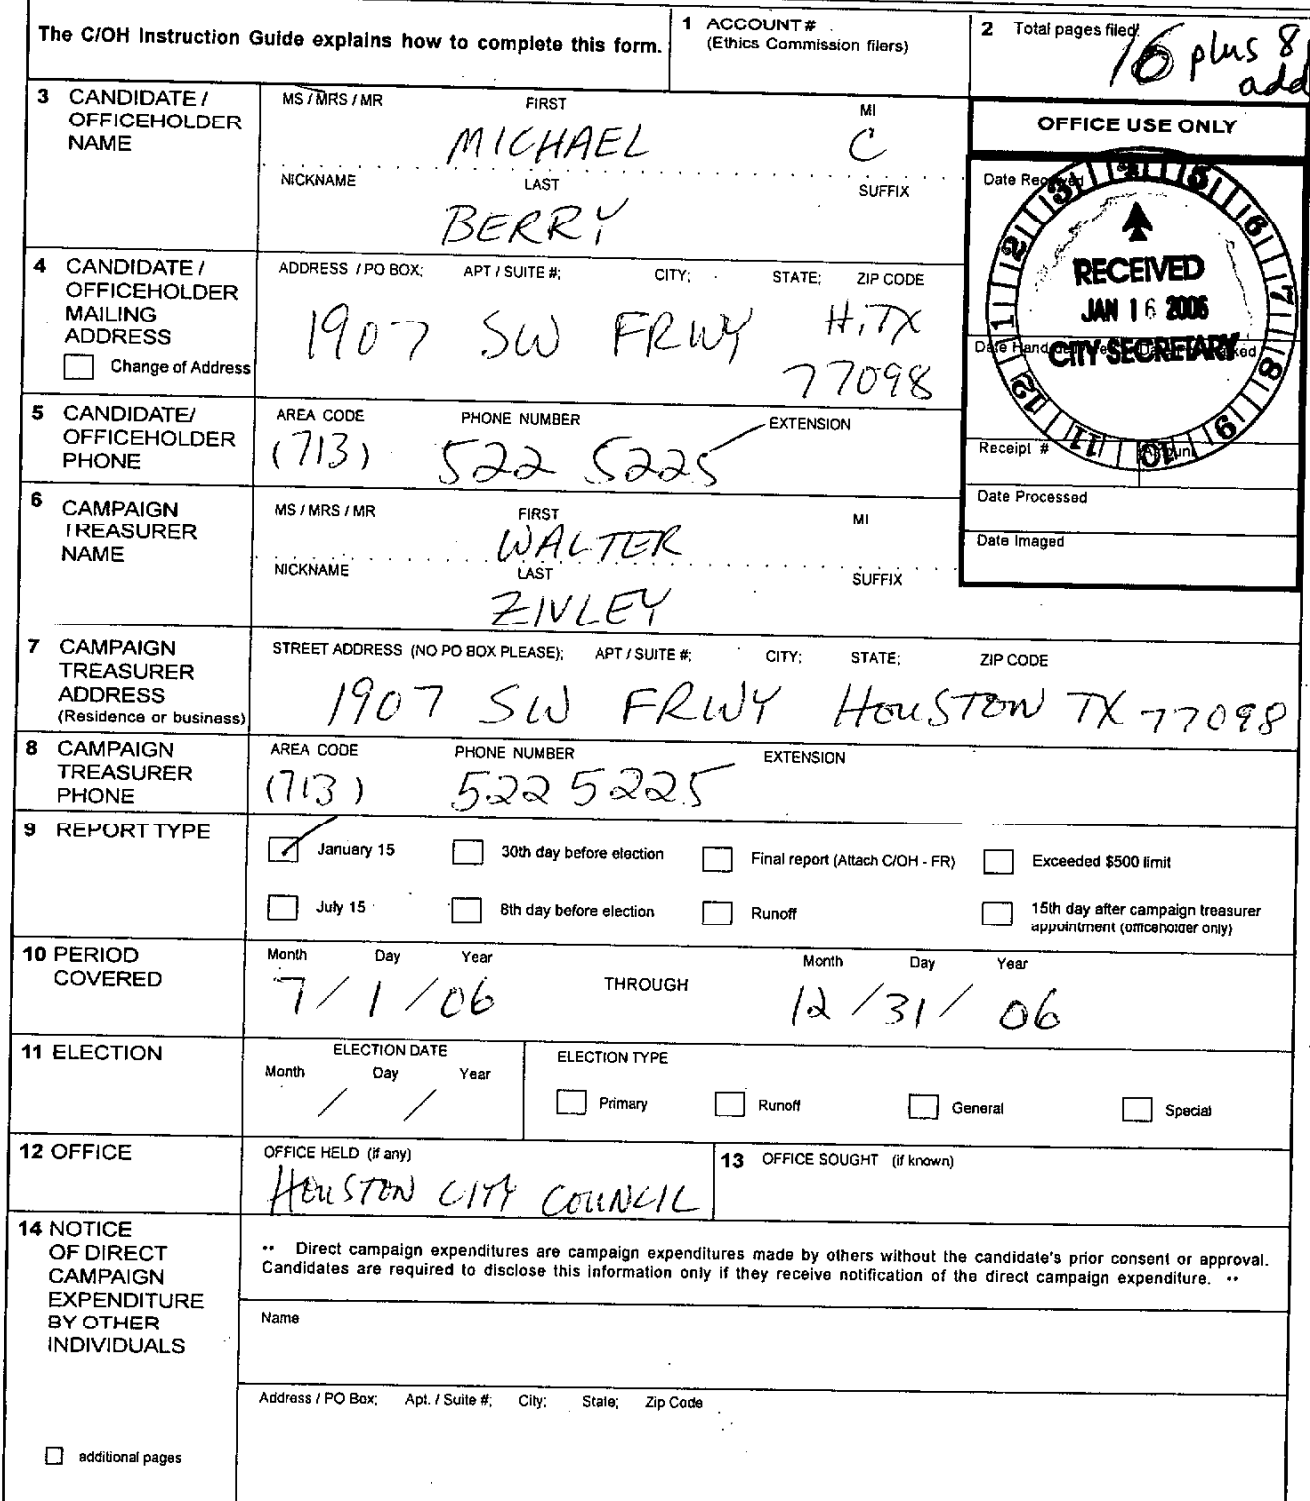 The C/OH Instruction Guide explains how to complete this form.
1 ACCOUNT #
(Ethics Commission filers)
2 Total pages filed:
16 plus 8
add
3 CANDIDATE /
OFFICEHOLDER
NAME
MS / MRS / MR FIRST MI
MICHAEL C
NICKNAME LAST SUFFIX
BERRY
OFFICE USE ONLY
Date Received
RECEIVED
JAN 16 2006
CITY SECRETARY
1 2 3 4 5 6 7 8 9 10 11 12
Receipt # Amount
Date Processed
Date Imaged
4 CANDIDATE /
OFFICEHOLDER
MAILING
ADDRESS
Change of Address
ADDRESS / PO BOX; APT / SUITE #; CITY; STATE; ZIP CODE
1907 SW FRWY H, TX
77098
5 CANDIDATE/
OFFICEHOLDER
PHONE
AREA CODE PHONE NUMBER EXTENSION
(713) 522 5225
6 CAMPAIGN
TREASURER
NAME
MS / MRS / MR FIRST MI
WALTER
NICKNAME LAST SUFFIX
ZIVLEY
7 CAMPAIGN
TREASURER
ADDRESS
(Residence or business)
STREET ADDRESS (NO PO BOX PLEASE); APT / SUITE #; CITY; STATE; ZIP CODE
1907 SW FRWY HOUSTON TX 77098
8 CAMPAIGN
TREASURER
PHONE
AREA CODE PHONE NUMBER EXTENSION
(713) 522 5225
9 REPORT TYPE
January 15 30th day before election Final report (Attach C/OH - FR) Exceeded $500 limit
July 15 8th day before election Runoff 15th day after campaign treasurer
appointment (officeholder only)
10 PERIOD
COVERED
Month Day Year Month Day Year
7 / 1 / 06 THROUGH 12 / 31 / 06
11 ELECTION
ELECTION DATE
Month Day Year
/ /
ELECTION TYPE
Primary Runoff General Special
12 OFFICE
OFFICE HELD (if any)
HOUSTON CITY COUNCIL
13 OFFICE SOUGHT (if known)
14 NOTICE
OF DIRECT
CAMPAIGN
EXPENDITURE
BY OTHER
INDIVIDUALS
additional pages
•• Direct campaign expenditures are campaign expenditures made by others without the candidate's prior consent or approval.
Candidates are required to disclose this information only if they receive notification of the direct campaign expenditure. ••
Name
Address / PO Box; Apt. / Suite #; City; State; Zip Code